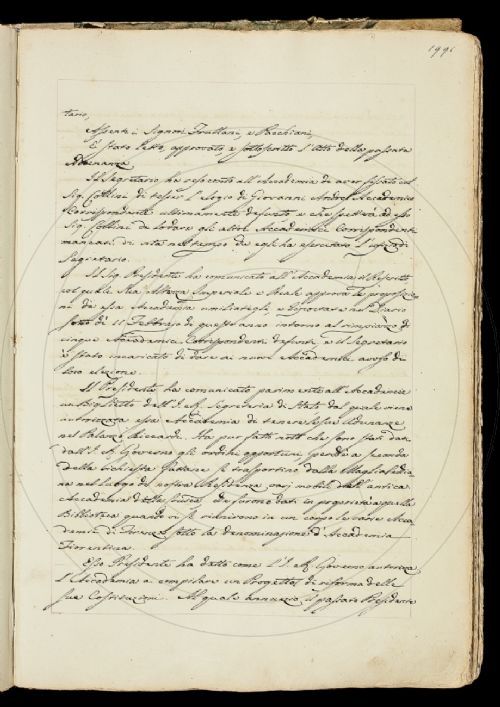 199
tario,
Assenti i Signori Fruttani, e Pacchiani,
È stato letto, approvato e sottoscritto l'atto della passata
Adunanza
Il Segretario ha referito all'Accademia di aver fissato col
Sig. Collini di tesser l'Elogio di Giovanni Accademico
Corrispondente ultimamente defunto e che spetterà ad esso
Sig. Collini di lodare gli altri Accademici Corrispondenti
mancati di vita nel tempo da egli ha esercitato l'ufizio di
Segretario.
Il Sig. Presidente ha comunicato all'Accademia il Rescritto
col quale Sua Altezza Imperiale e Reale approva le proposizio
ni da essa Accademia umiliategli e
sotto dì 11 Febbrajo di quest'anno intorno al rimpiazzo di
cinque Accademici Corrispondenti defunti, e il Segretario
è stato incaricato di dare ai nuovi Accademici avviso di
loro elezione.
Il Presidente ha comunicato parimente all'Accademia
un Biglietto dell'I. R. Segreteria di Stato dal quale viene
autorizzata essa Accademia di tenere le sue Adunanze
nel Palazzo Riccardi. Ha pur fatto noto che sono stati dati
dall'I. R. Governo gli ordini opportuni perché a seconda
della richiesta fattane si trasportino dalla Magliabechia
na nel luogo di nostra Residenza varj mobili dell'antica
Accademia della Crusca che furono dati in proprietà a quella
Biblioteca quando si riunirono in un corpo le varie Acca
demie di Firenze sotto la denominazione d'Accademia
Fiorentina.
Esso Presidente ha detto come l'I. R. Governo autorizza
l'Accademia a compilare un Progetto di riforma delle
sue Costituzioni. Al quale annunzio il passato Presidente